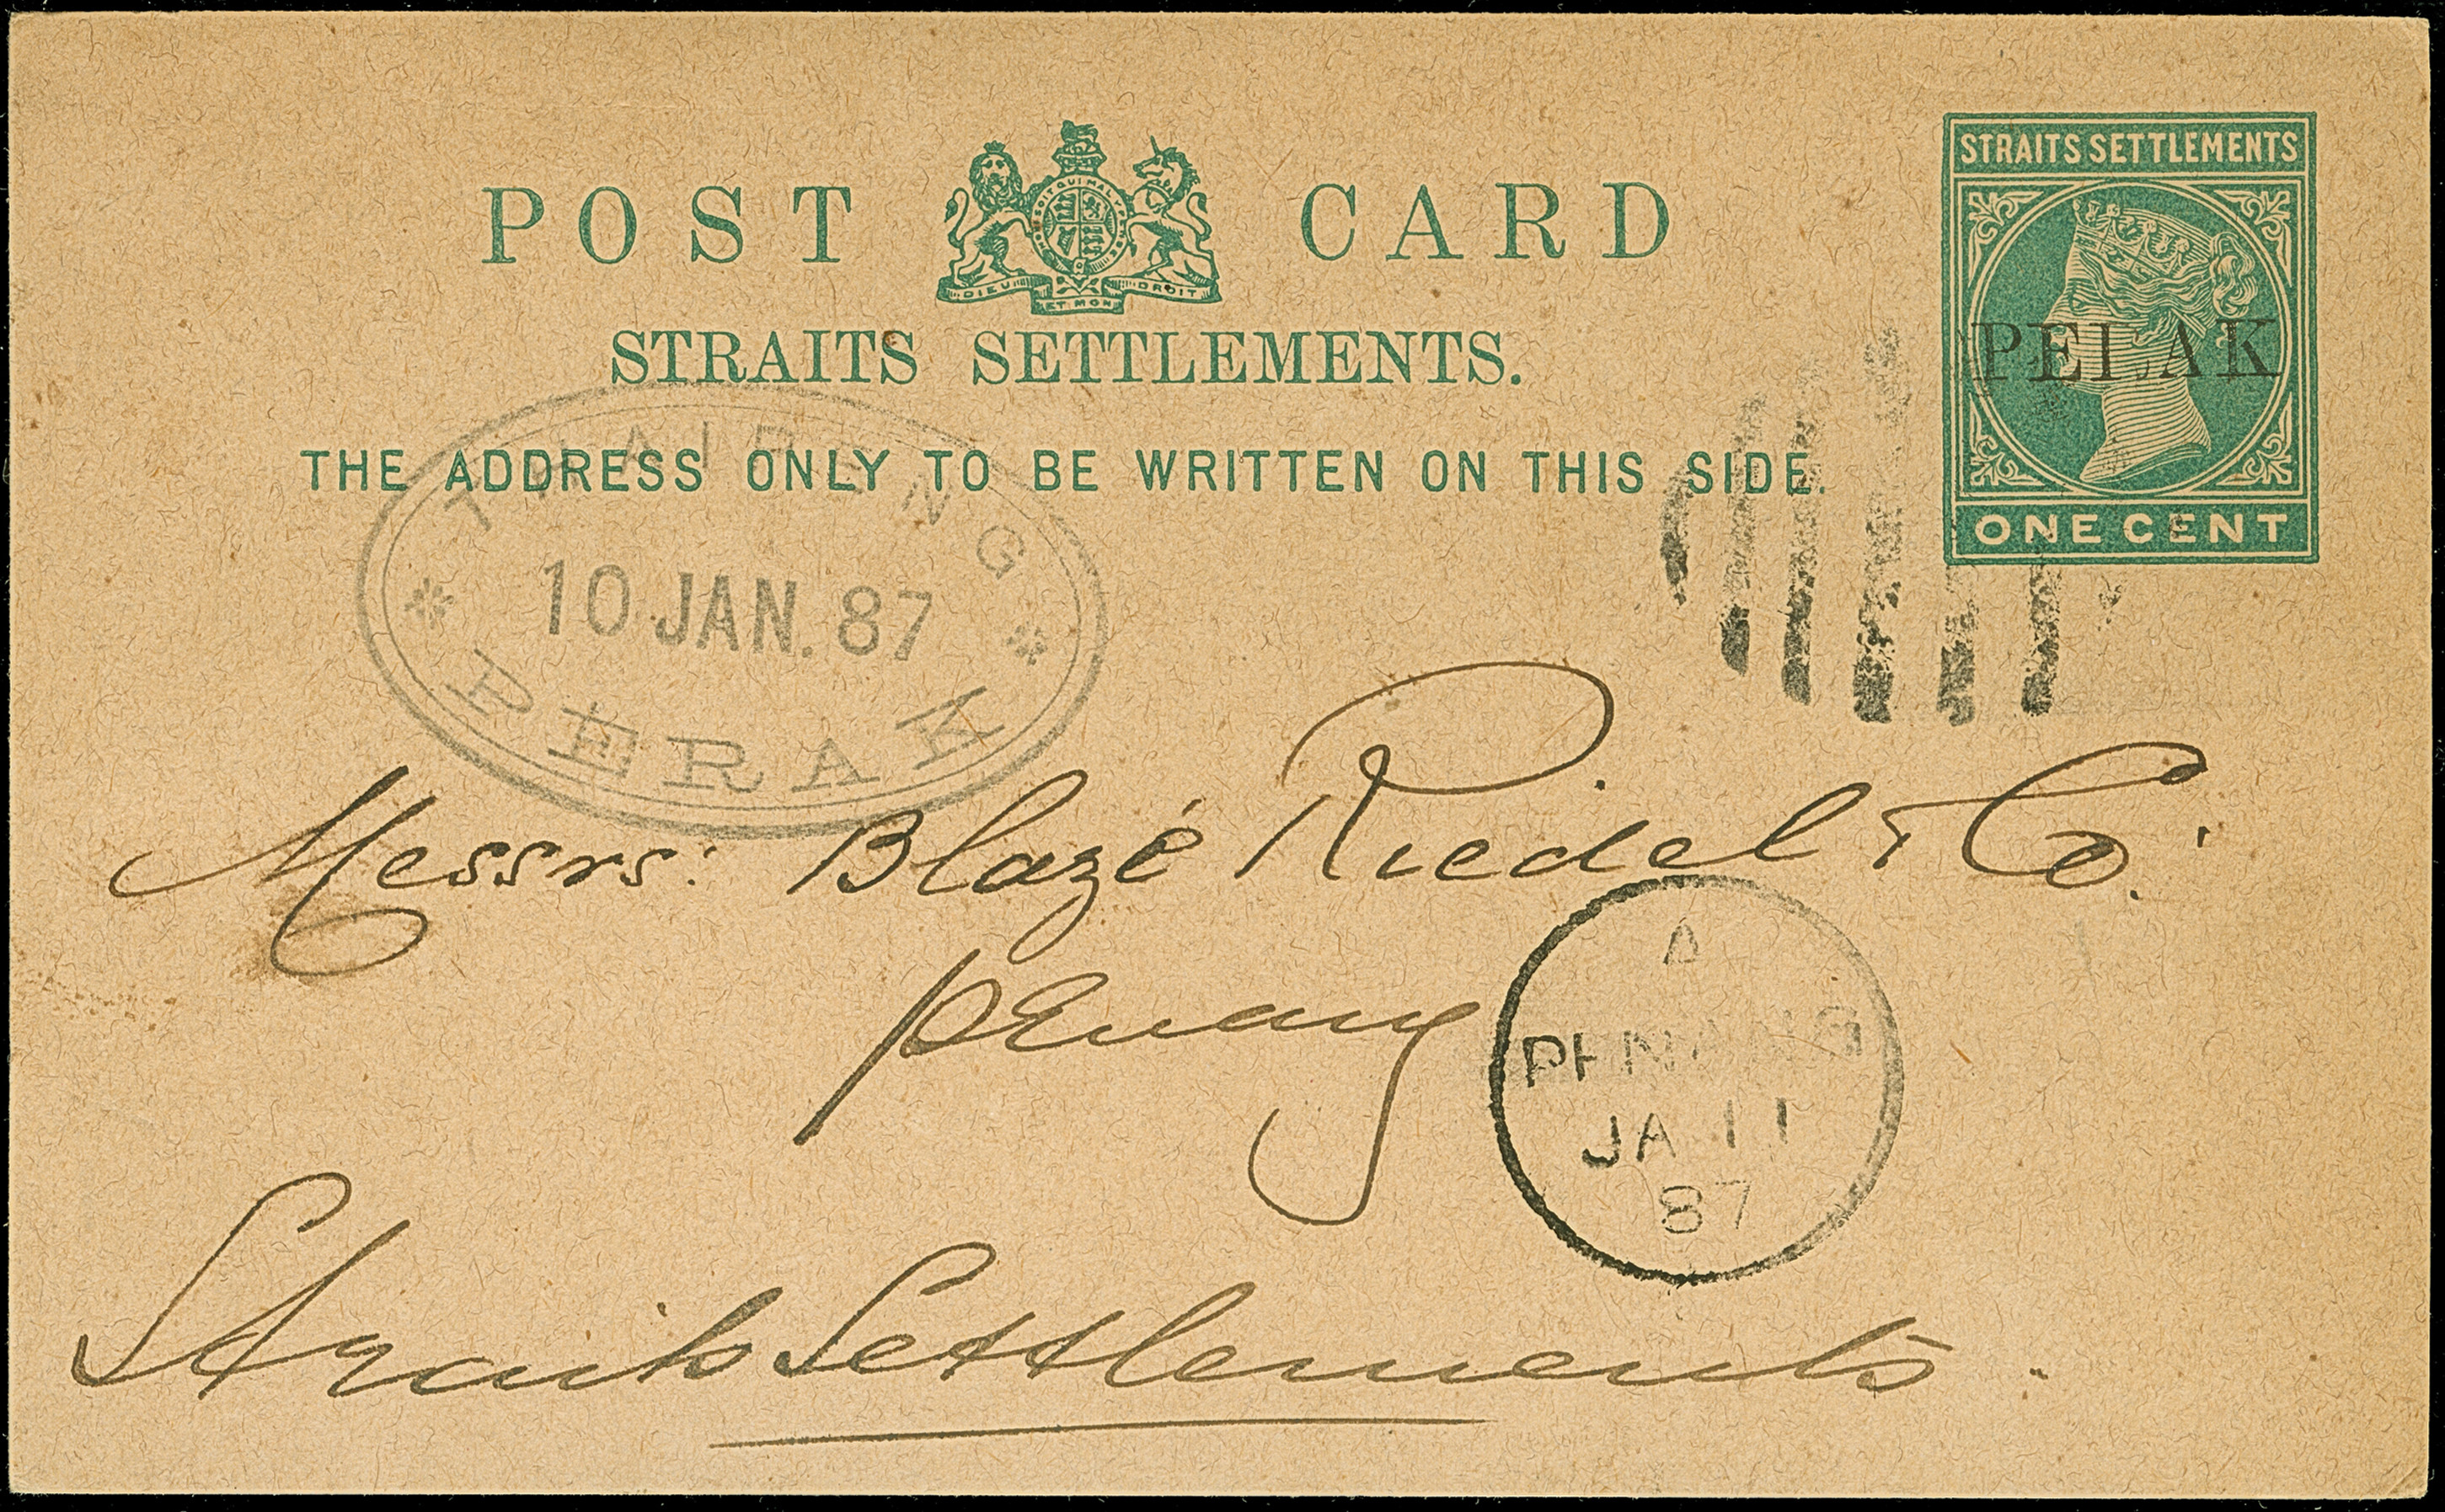 STRAITS SETTLEMENTS
POST CARD
SOIT QUI MAL Y PENSE
DIEU ET MON DROIT
STRAITS SETTLEMENTS.
PELAK
THE ADDRESS ONLY TO BE WRITTEN ON THIS SIDE.
ONE CENT
THAIPENG
10 JAN. 87
PERAK
Messrs: Blazé Riedel & Co.
Penang
A
PENANG
JA 11
87
Straits Settlements.